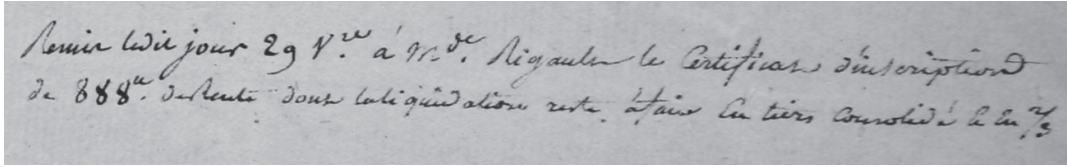 Remis ledit jour 29 V.re à M.de Rigault le Certificat d'inscription
de 888tt. de Rente dont la liquidation reste à faire En tiers Consolidé & En 2/3